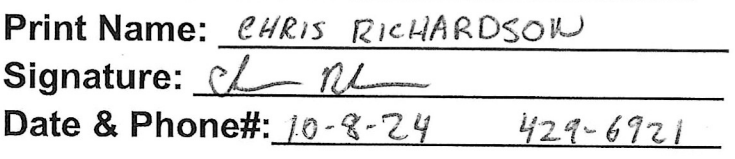 Print Name: CHRIS RICHARDSON
Signature:
Date & Phone#: 10-8-24 429-6921